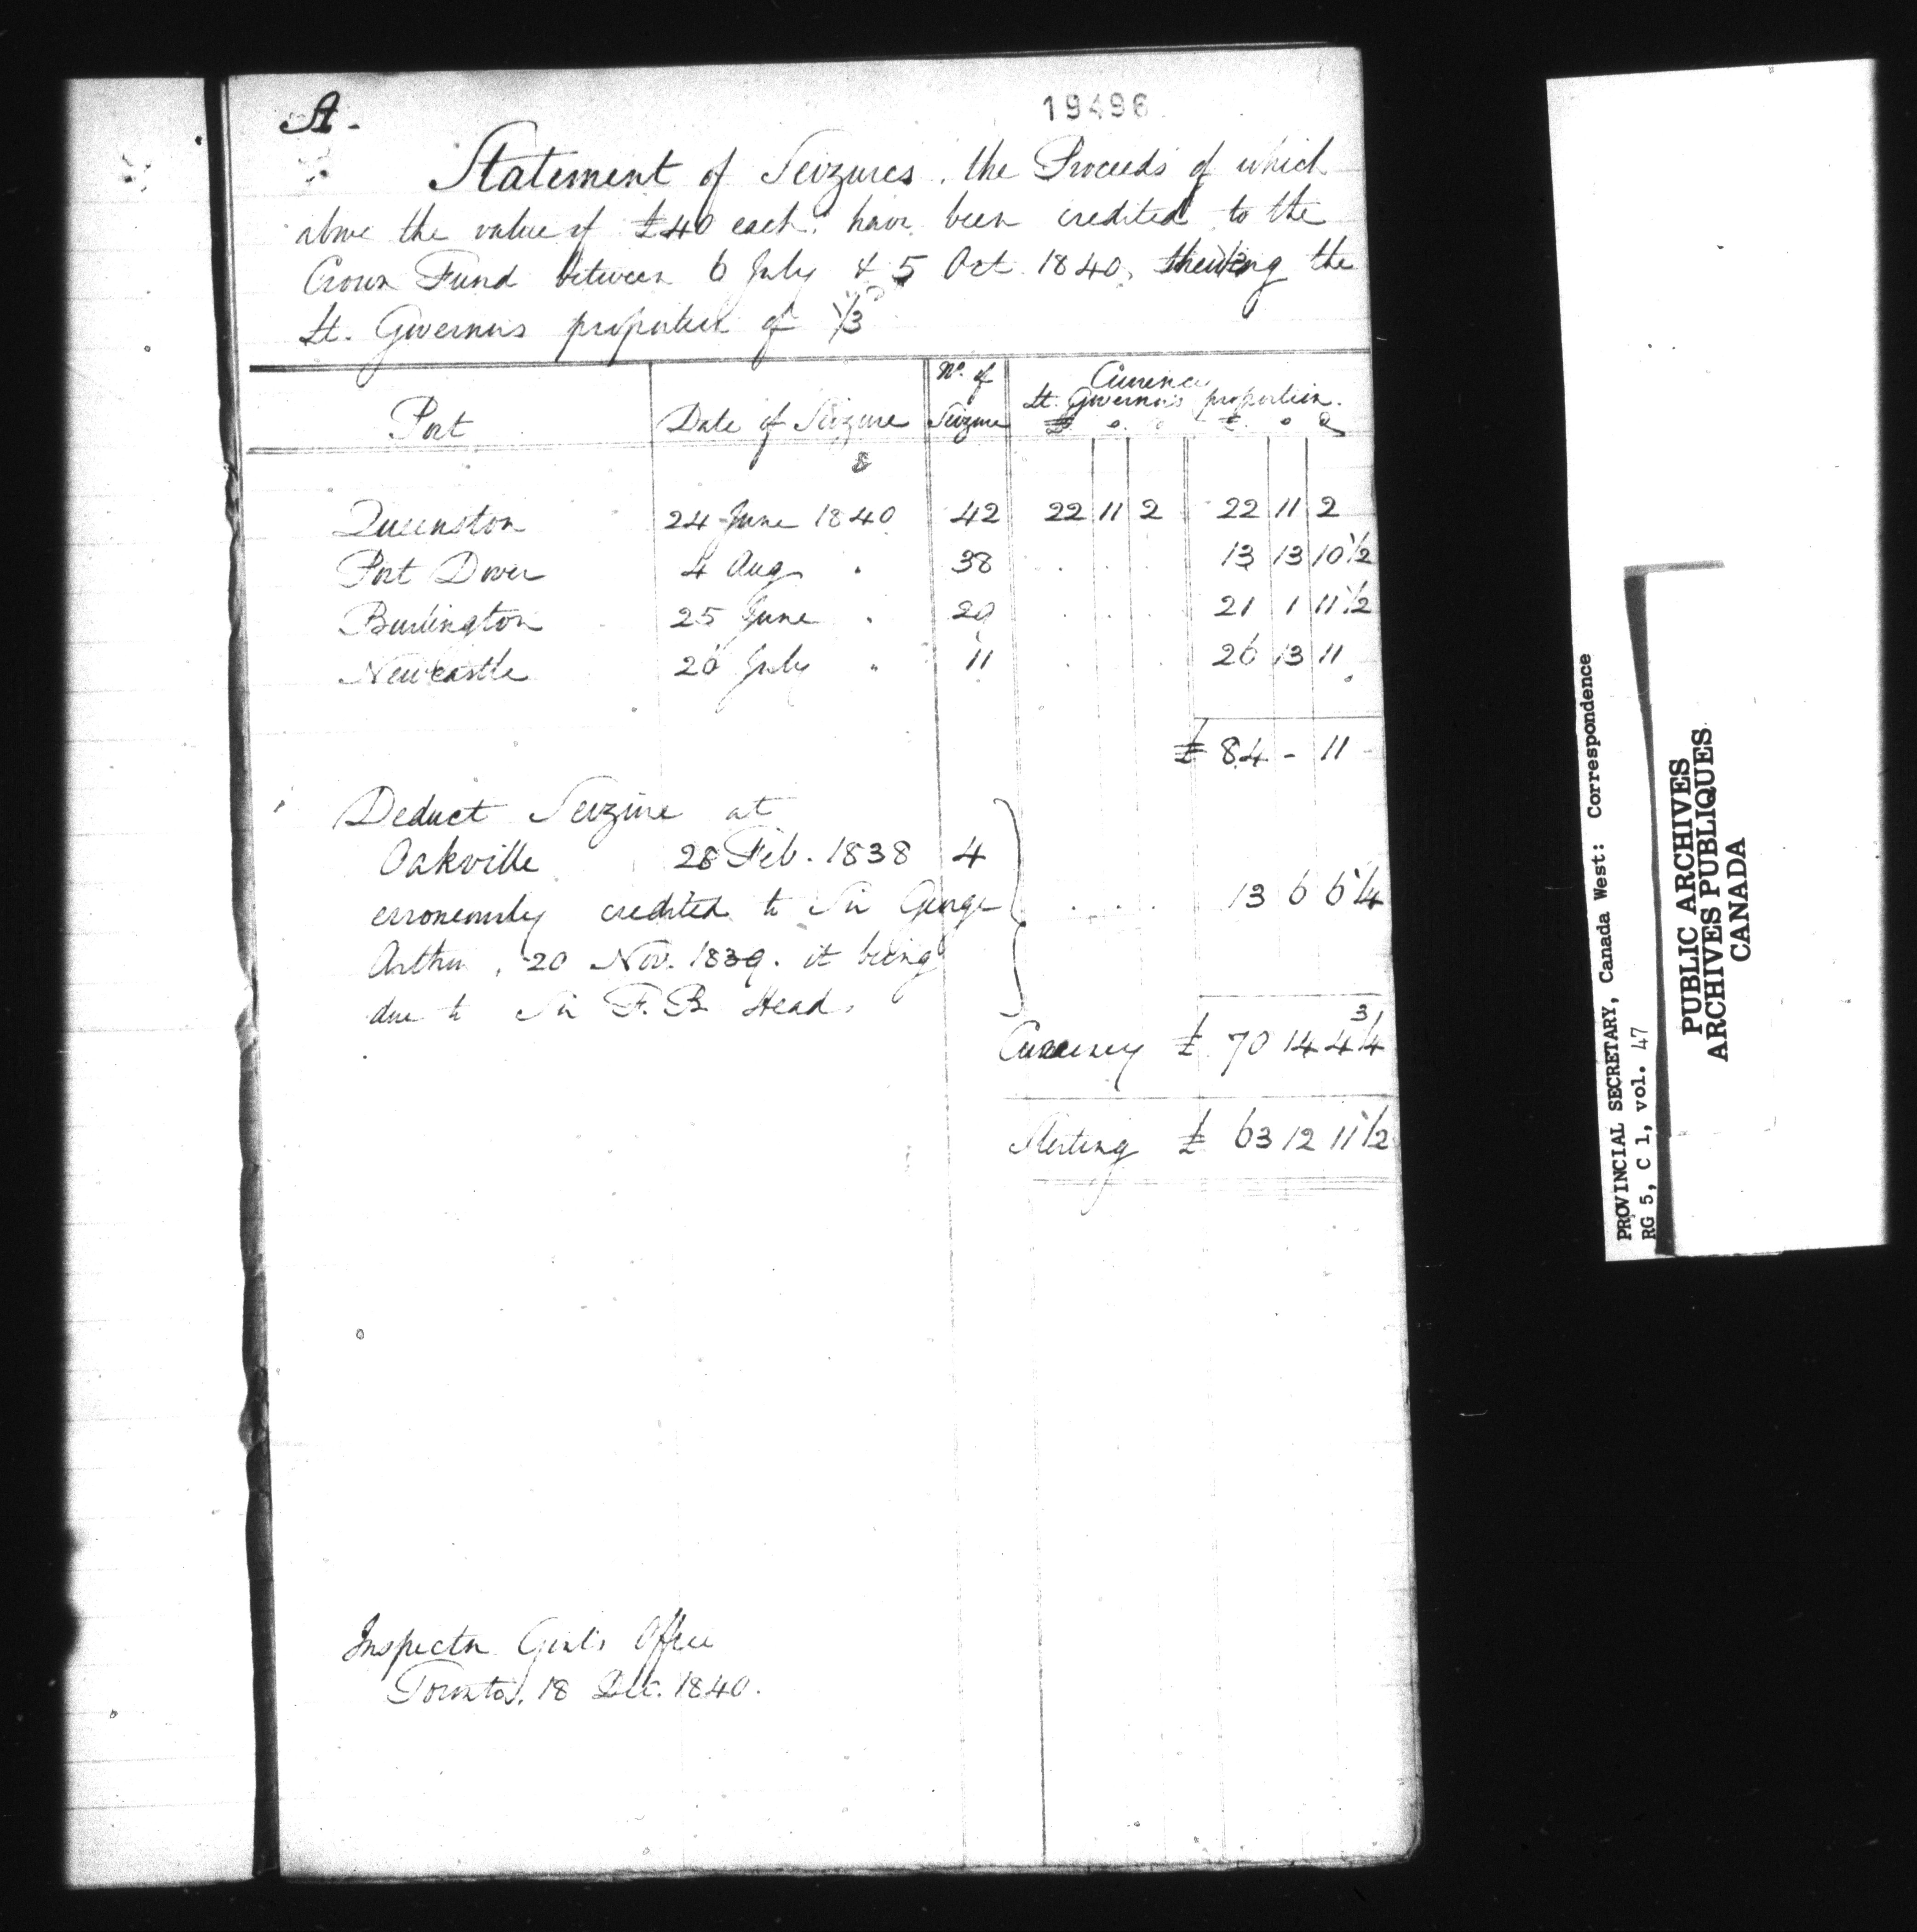 A.
19496
Statement of Seizures, the Proceeds of which
above the value of £40 each, have been credited to the
Crown Fund between 6 July & 5 Oct 1840, shewing the
Lt. Governors proportion of 1/3
Port
Date of Seizure
No. of Seizure
Currency
Lt. Governors proportion.
Queenston 24 June 1840 42 22 11 2 22 11 2
Port Dover 4 Aug " 38 . . . 13 13 10 1/2
Burlington 25 June " 29 . . . 21 1 11 1/2
Newcastle 20 July " 11 . . . 26 13 11
£ 84 - 11
Deduct Seizure at
Oakville 28 Feb. 1838 4
erroneously credited to Sir George . . . . 13 6 6 1/4
Arthur, 20 Nov. 1839. it being
due to Sir F. B. Head.
Currency £ 70 14 4 3/4
Sterling £ 63 12 11 1/2
Inspector Genl's Office
Toronto, 18 Dec. 1840.
PROVINCIAL SECRETARY, Canada West: Correspondence
RG 5, C 1, vol. 47
PUBLIC ARCHIVES
ARCHIVES PUBLIQUES
CANADA